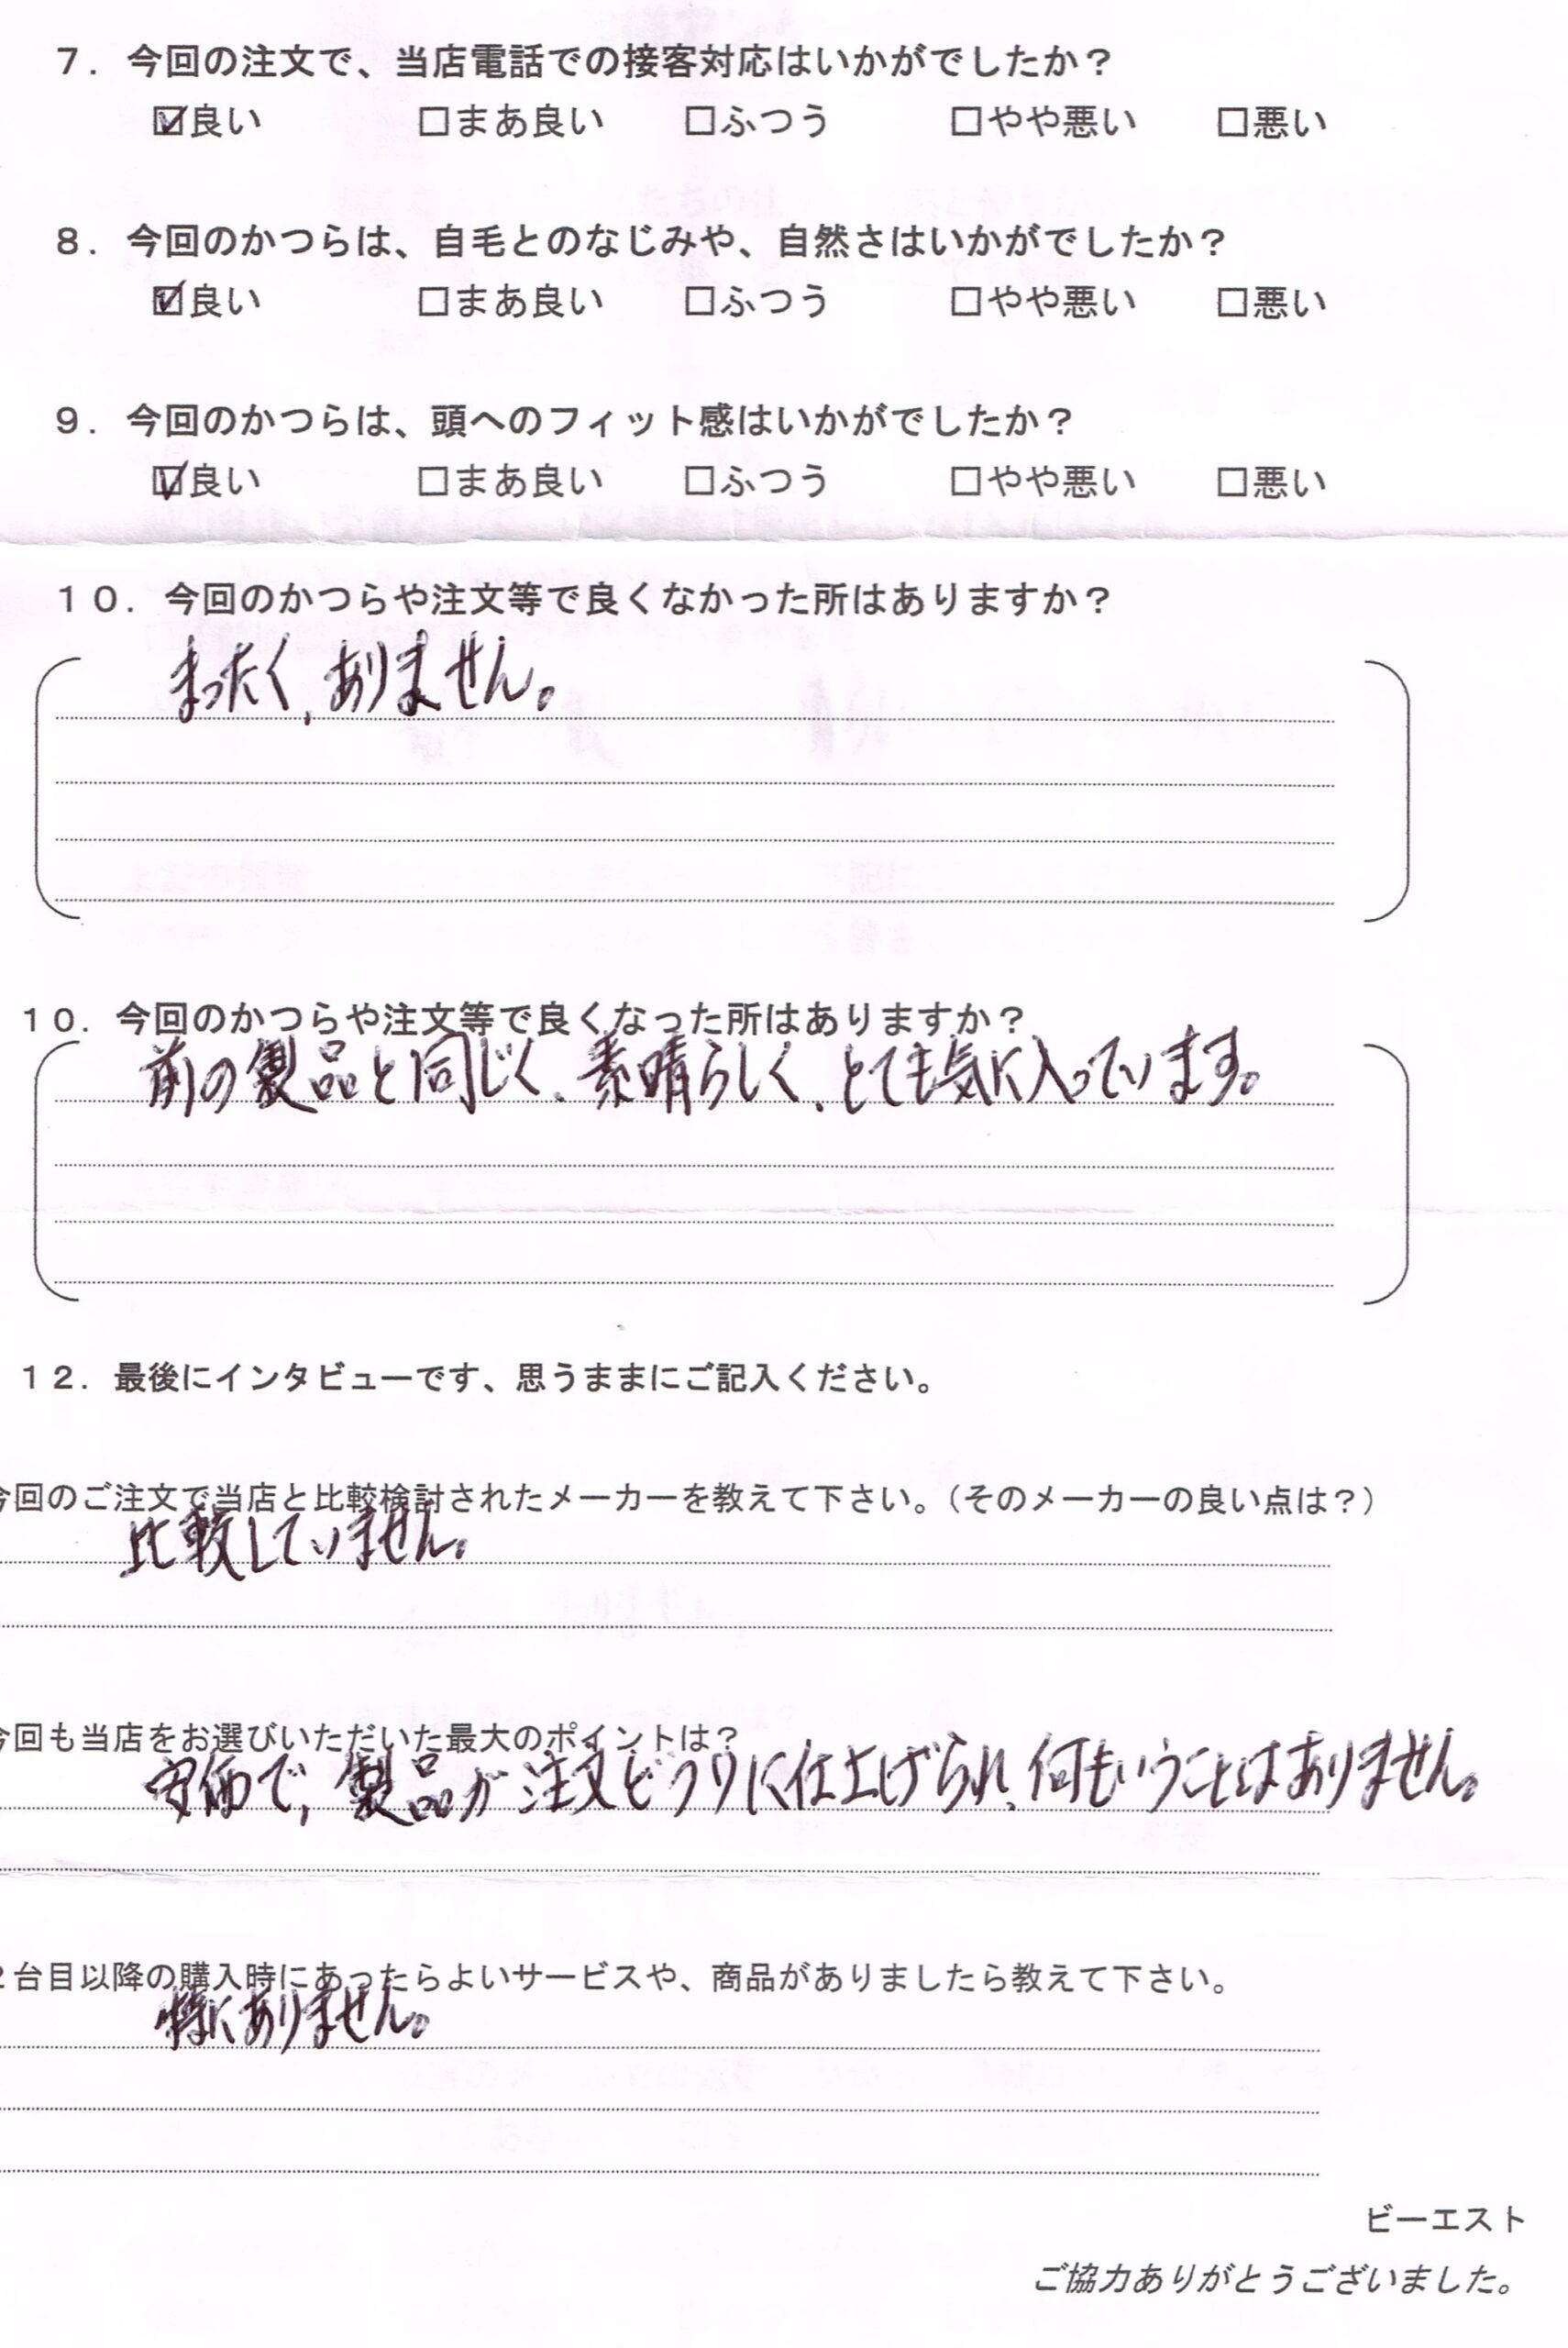 ７．今回の注文で、当店電話での接客対応はいかがでしたか？
☑良い　□まあ良い　□ふつう　□やや悪い　□悪い
８．今回のかつらは、自毛とのなじみや、自然さはいかがでしたか？
☑良い　□まあ良い　□ふつう　□やや悪い　□悪い
９．今回のかつらは、頭へのフィット感はいかがでしたか？
☑良い　□まあ良い　□ふつう　□やや悪い　□悪い
１０．今回のかつらや注文等で良くなかった所はありますか？
まったく、ありません。
１０．今回のかつらや注文等で良くなった所はありますか？
前の製品と同じく、素晴らしく、とても気に入っています。
１２．最後にインタビューです、思うままにご記入ください。
今回のご注文で当店と比較検討されたメーカーを教えて下さい。（そのメーカーの良い点は？）
比較していません。
今回も当店をお選びいただいた最大のポイントは？
安価で、製品が注文どうりに仕上げられ、何もいうことはありません。
２台目以降の購入時にあったらよいサービスや、商品がありましたら教えて下さい。
特にありません。
ビーエスト
ご協力ありがとうございました。